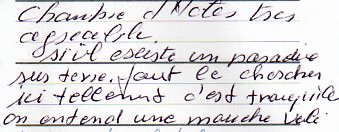 Chambre d'Hotes tres
agreable.
s'il existe un paradis
sur terre. faut le chercher
ici tellement c'est tranquile
on entend une mouche vole